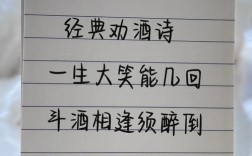 经典劝酒诗
一生大笑能几回
斗酒相逢须醉倒